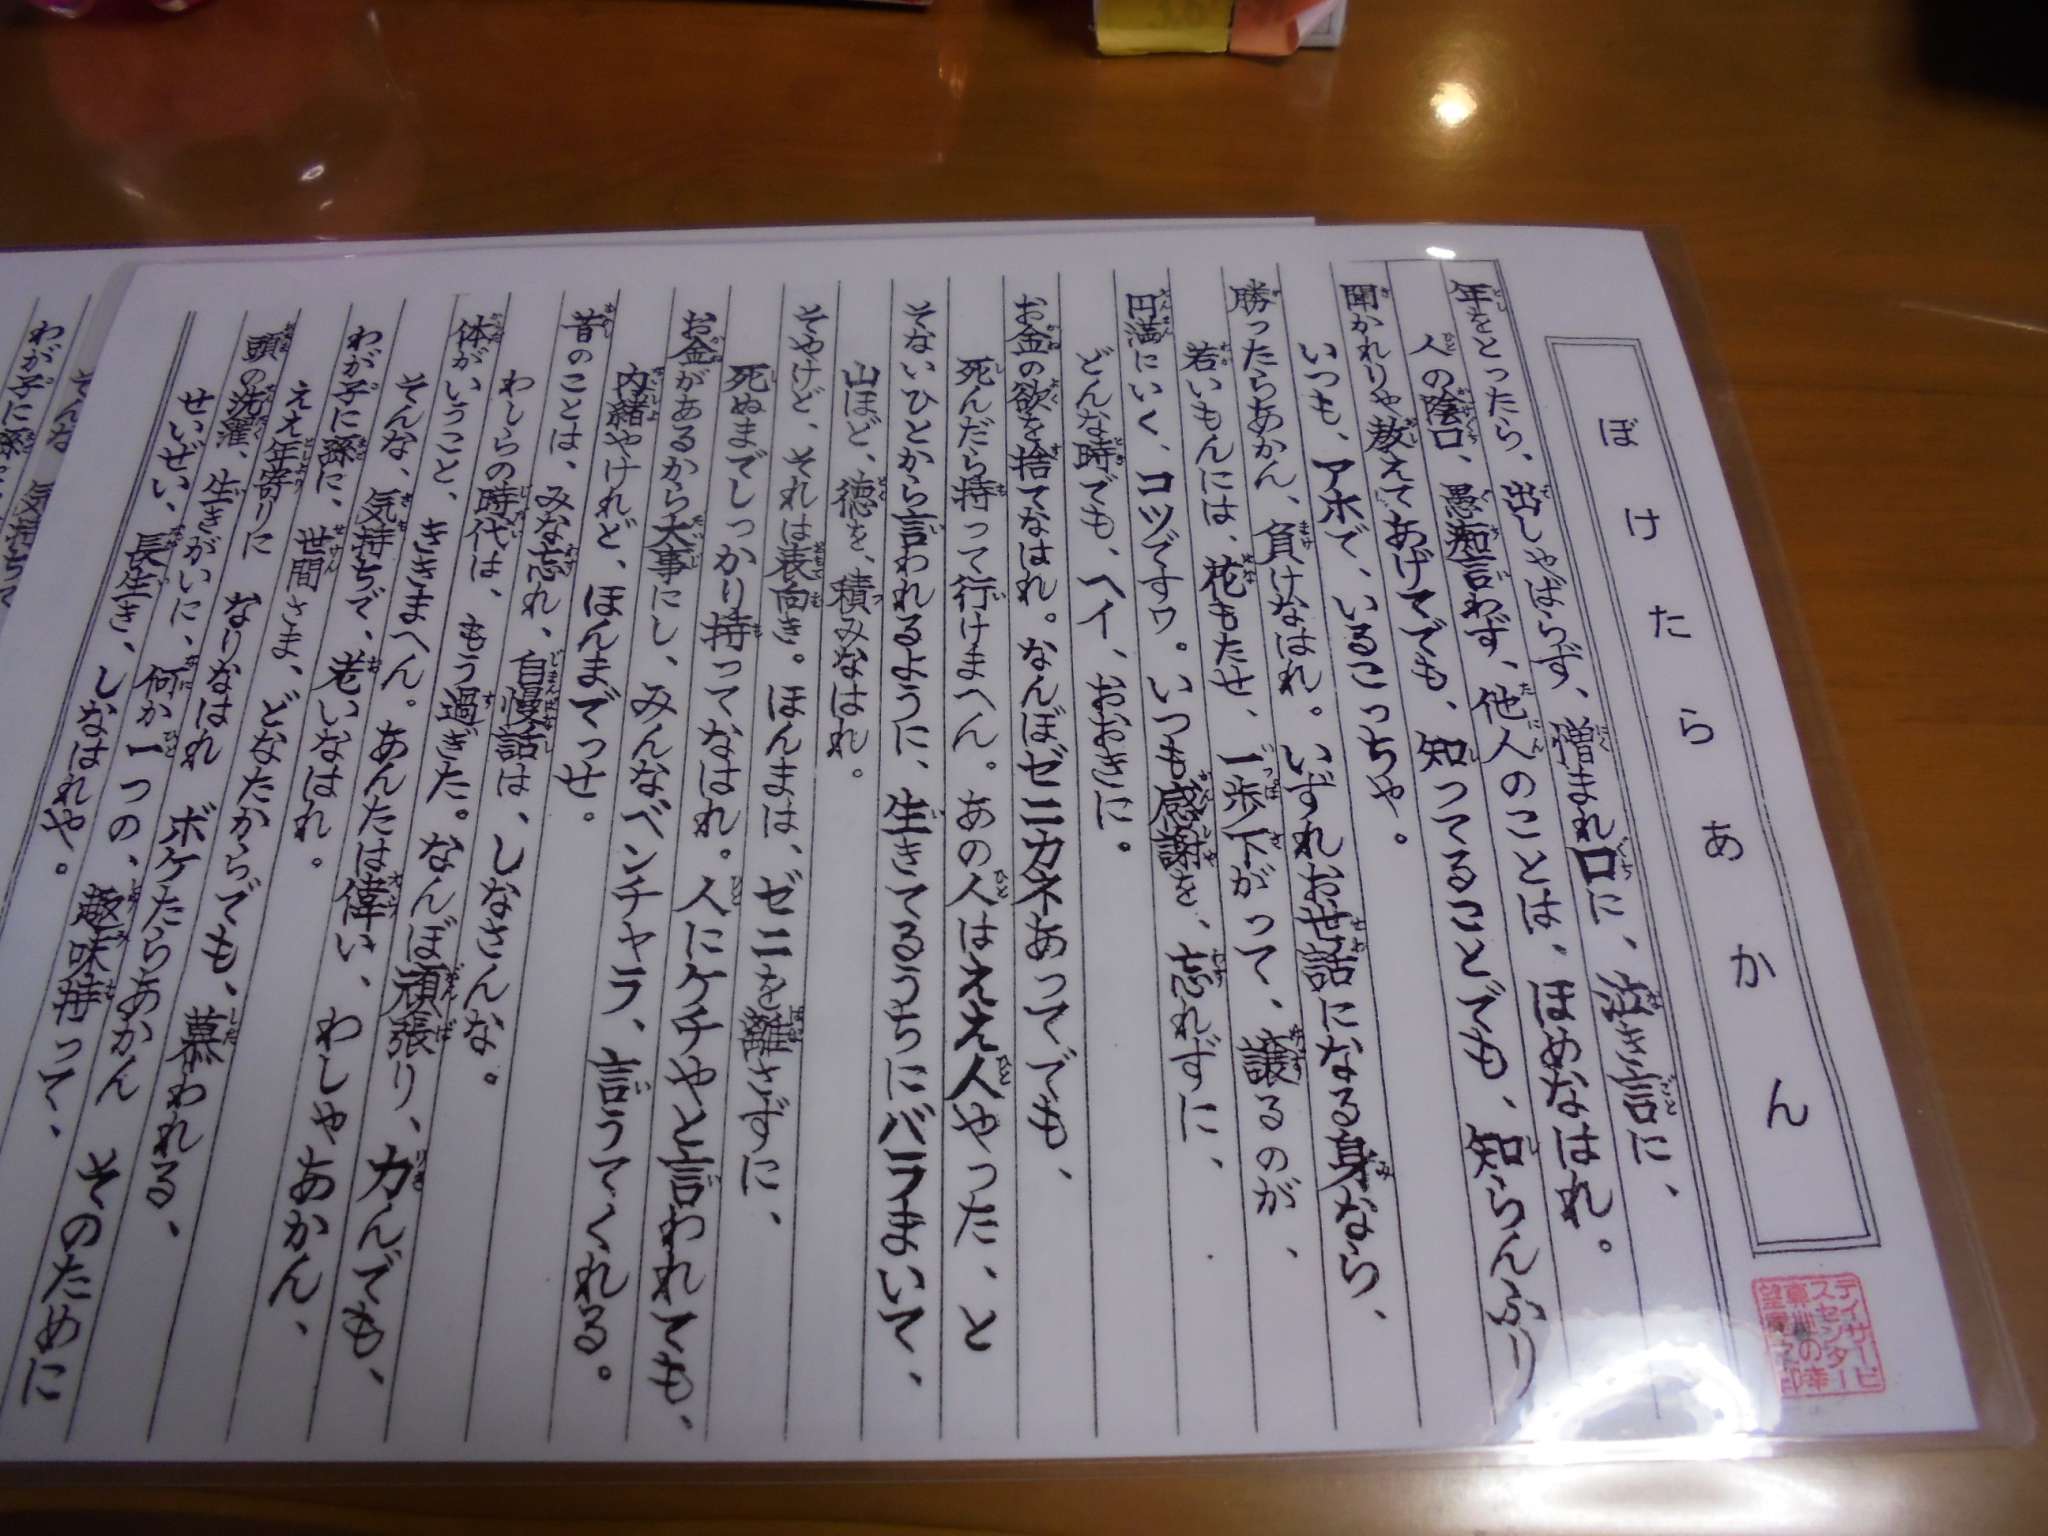 ぼけたらあかん
年をとったら、出しゃばらず、憎まれ口に、泣き言に、
人の陰口、愚痴言わず、他人のことは、ほめなはれ。
聞かれりゃ教えてあげてでも、知ってることでも、知らんふり
いつも、アホで、いるこっちゃ。
勝ったらあかん、負けなはれ。いずれお世話になる身なら、
若いもんには、花もたせ、一歩下がって、譲るのが、
円満にいく、コツですワ。いつも感謝を、忘れずに、
どんな時でも、ヘイ、おおきに。
お金の欲を捨てなはれ。なんぼゼニカネあってでも、
死んだら持って行けまへん。あの人はええ人やった、と
そないひとから言われるように、生きてるうちにバラまいて、
山ほど、徳を、積みなはれ。
そやけど、それは表向き。ほんまは、ゼニを離さずに、
死ぬまでしっかり持ってなはれ。人にケチやと言われても、
お金があるから大事にし、みんなベンチャラ、言うてくれる。
内緒やけれど、ほんまでっせ。
昔のことは、みな忘れ、自慢話は、しなさんな。
わしらの時代は、もう過ぎた。なんぼ頑張り、力んでも、
体がいうこと、ききまへん。あんたは偉い、わしゃあかん、
そんな、気持ちで、老いなはれ。
わが子に孫に、世間さま、どなたからでも、慕われる、
ええ年寄りに なりなはれ ボケたらあかん そのために
頭の洗濯、生きがいに、何か一つの、趣味持って、
せいぜい、長生き、しなはれや。
デイサービ
スセンター
そんな 気持ちで
わが子に孫